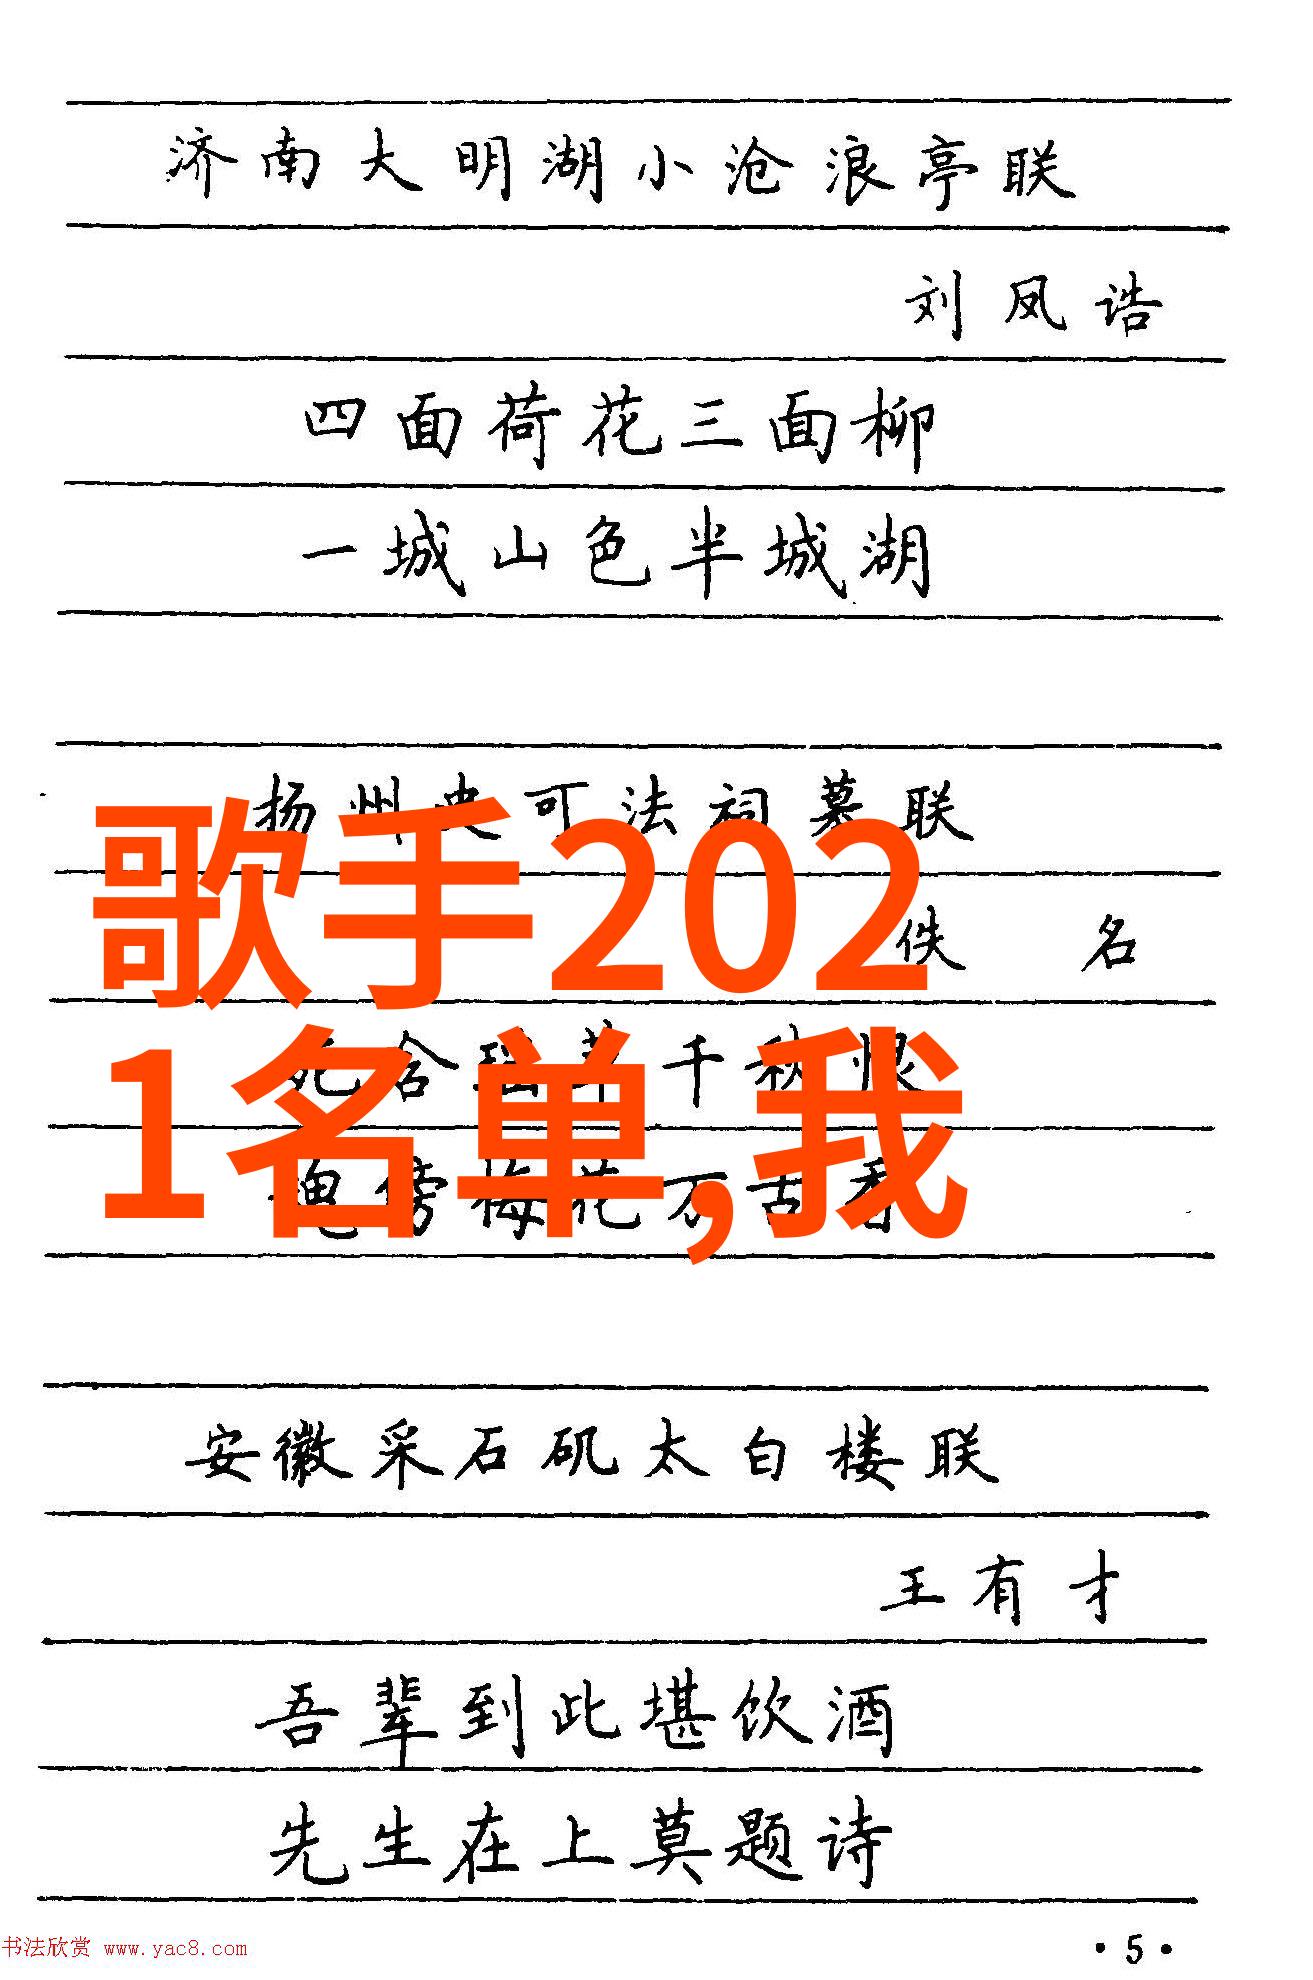 济南大明湖小沧浪亭联
刘凤诰
四面荷花三面柳
一城山色半城湖
扬州史可法祠墓联
佚名
歌手202
1名单,我
千秋恨
魂傍梅花万古香
安徽采石矶太白楼联
王有才
吾辈到此堪饮酒
先生在上莫题诗
书法欣赏 www.yac8.com
·5·